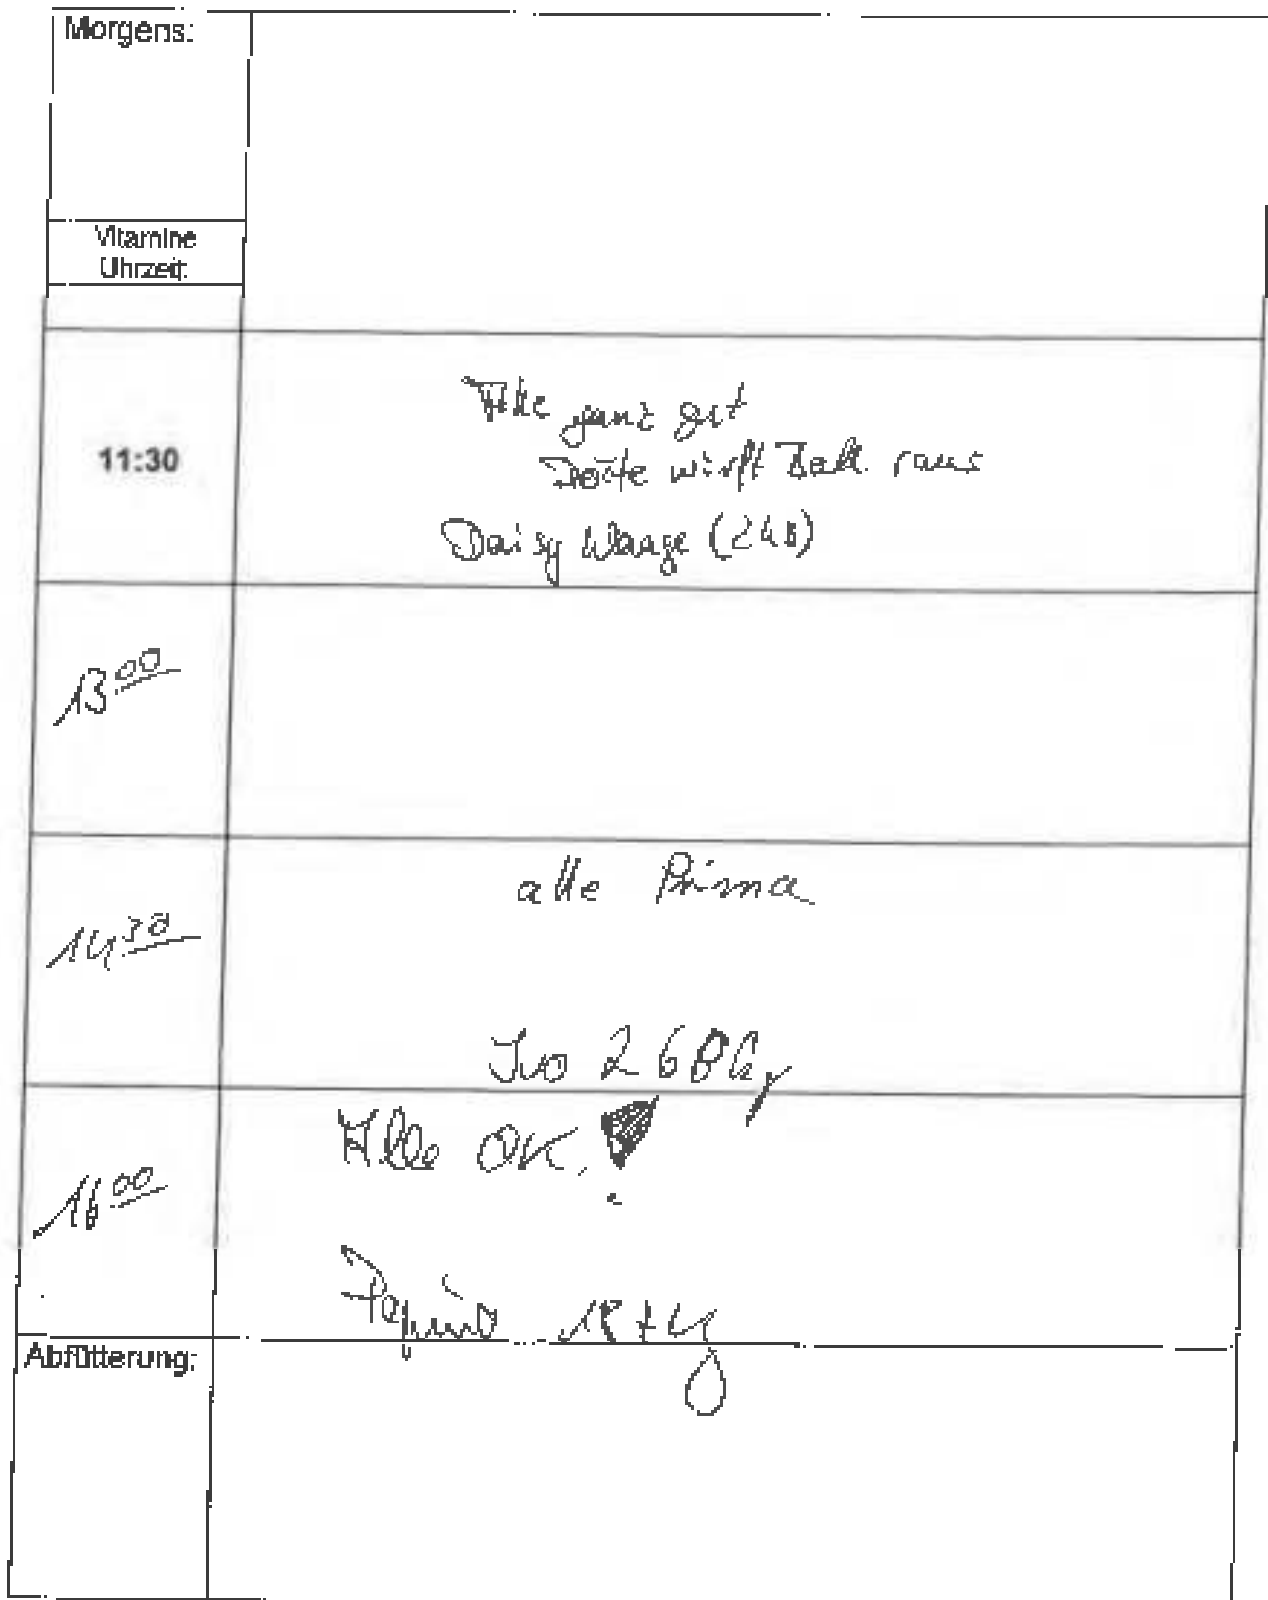 Morgens:
Vitamine
Uhrzeit:
11:30
Alle ganz gut
Dörte wirft Ball raus
Daisy Waage (248)
13 00
14 30
alle Prima
Ivo 268 kg
16 00
Alle OK.!
Abfütterung: